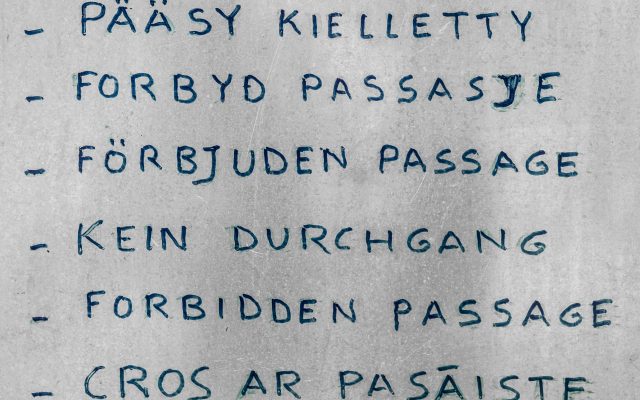 - PÄÄSY KIELLETTY
- FORBYD PASSASJE
- FÖRBJUDEN PASSAGE
- KEIN DURCHGANG
- FORBIDDEN PASSAGE
- CROS AR PASĀISTE